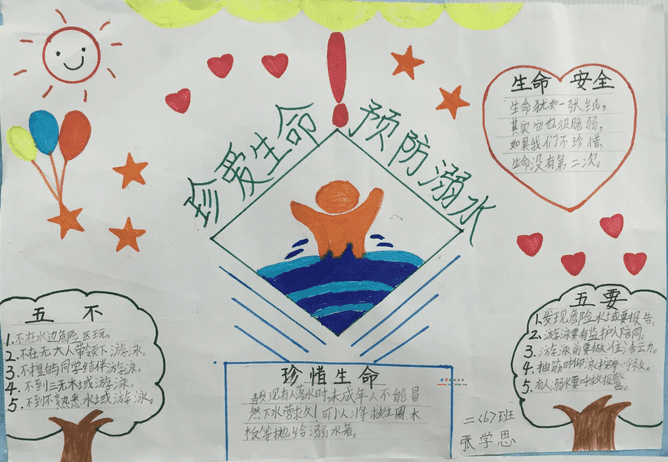 珍爱生命
预防溺水
生命 安全
生命犹如一张纸,
其实它也很脆弱,
如果我们不珍惜
生命没有第二次。
五 不
1.不在水边危险区玩。
2.不在无大人带领下游泳。
3.不擅自同学结伴游泳。
4.不到三无水域游泳。
5.不到不熟悉水域游泳。
珍惜生命
发现有人落水时,未成年人不能冒
然下水营救,可以将救生圈木
板等抛给溺水者。
五要
1.发现危险水域要报告。
2.游泳要有监护人陪同。
3.游泳前要做
4.抽筋时仰
呼救。
5.有人溺水要呼救报警。
二(6)班
张学思